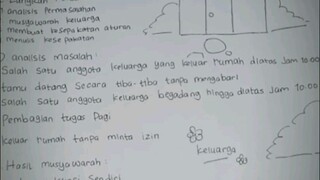 analisis Permasalahan
musyawarah keluarga
membuat kesepakatan aturan
menulis kesepakatan
analisis masalah:
Salah satu anggota keluarga yang keluar rumah diatas Jam 10.00
tamu datang Secara tiba-tiba tanpa mengabari
Salah satu anggota keluarga begadang hingga diatas Jam 10.00
Pembagian tugas Pagi
keluar rumah tanpa minta izin
keluarga
Hasil musyawarah:
Sendiri